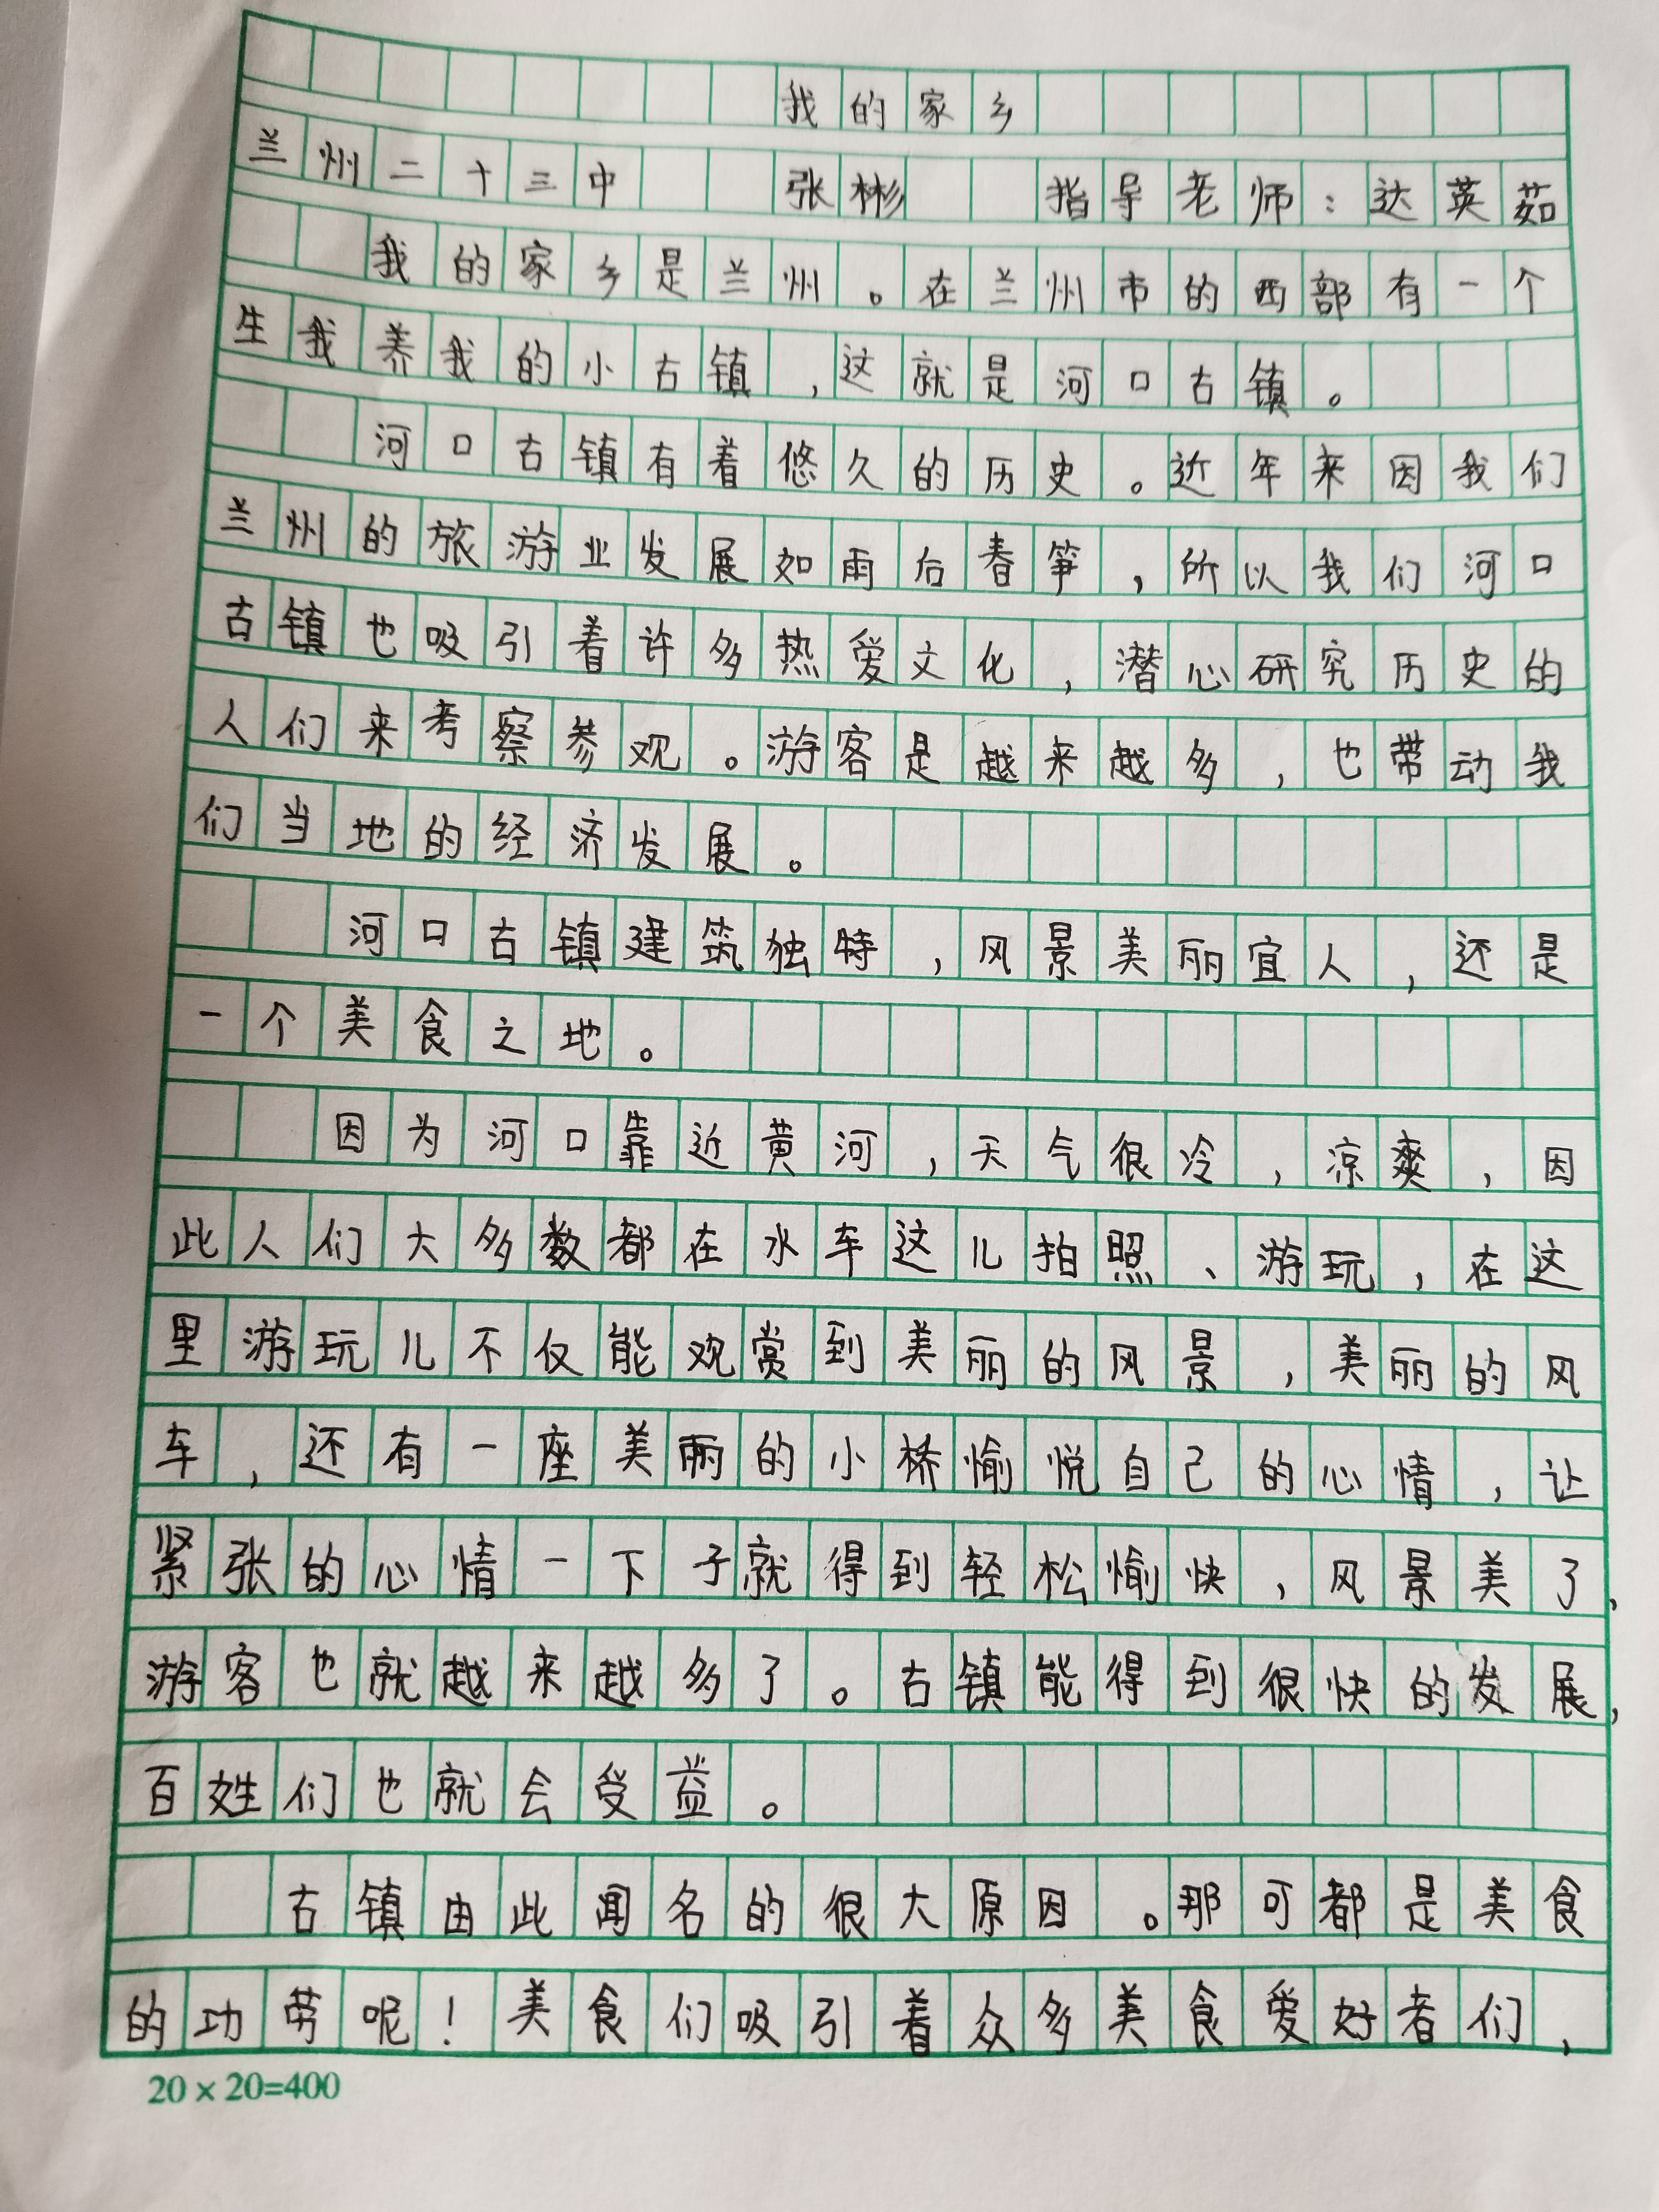 我的家乡
兰州二十三中 张彬 指导老师：达英茹
我的家乡是兰州。在兰州市的西部有一个
生我养我的小古镇，这就是河口古镇。
河口古镇有着悠久的历史。近年来因我们
兰州的旅游业发展如雨后春笋，所以我们河口
古镇也吸引着许多热爱文化，潜心研究历史的
人们来考察参观。游客是越来越多，也带动我
们当地的经济发展。
河口古镇建筑独特，风景美丽宜人，还是
一个美食之地。
因为河口靠近黄河，天气很冷，凉爽，因
此人们大多数都在水车这儿拍照、游玩，在这
里游玩儿不仅能观赏到美丽的风景，美丽的风
车，还有一座美丽的小桥愉悦自己的心情，让
紧张的心情一下子就得到轻松愉快，风景美了，
游客也就越来越多了。古镇能得到很快的发展，
百姓们也就会受益。
古镇由此闻名的很大原因。那可都是美食
的功劳呢！美食们吸引着众多美食爱好者们，
20×20=400